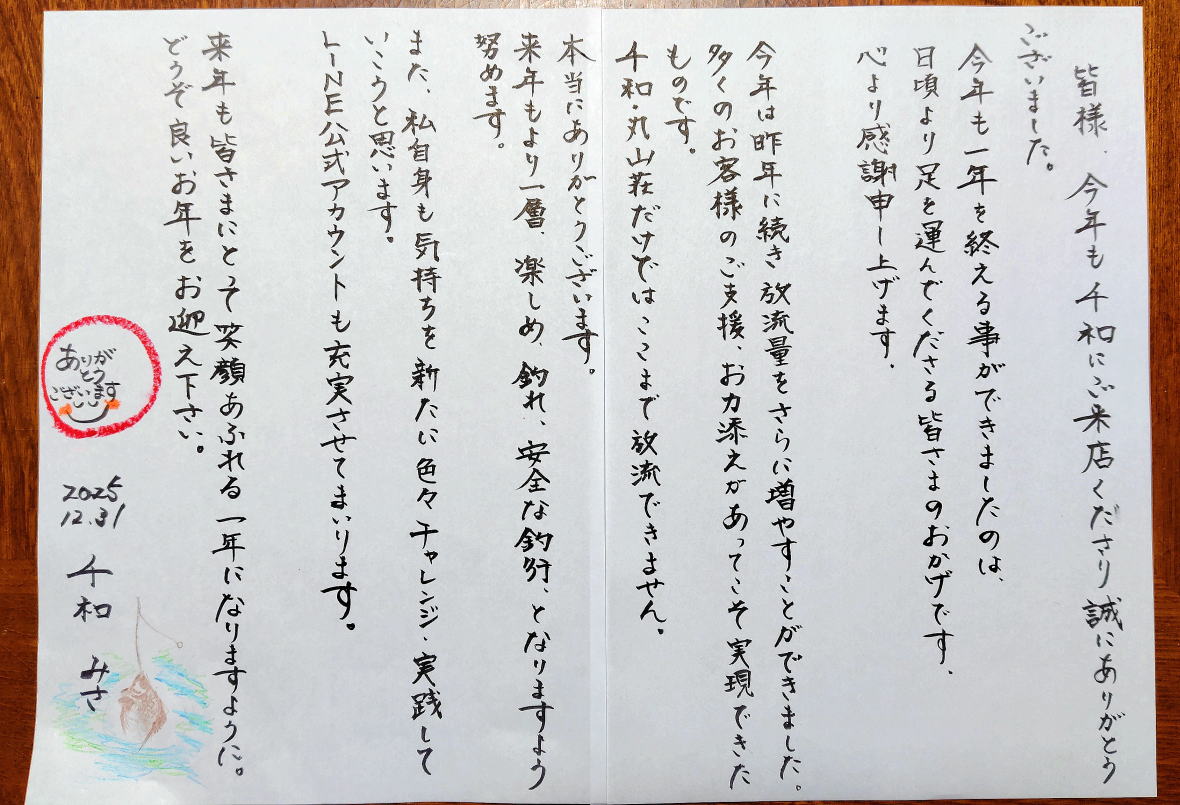 皆様、今年も千和にご来店くださり誠にありがとう
ございました。
今年も一年を終える事ができましたのは、
日頃より足を運んでくださる皆さまのおかげです。
心より感謝申し上げます。
今年は昨年に続き放流量をさらに増やすことができました。
多くのお客様のご支援、お力添えがあってこそ実現できた
ものです。
千和・丸山荘だけではここまで放流できません。
本当にありがとうございます。
来年もより一層、楽しめ、釣れ、安全な釣行、となりますよう
努めます。
また、私自身も気持ちを新たに色々チャレンジ・実践して
いこうと思います。
LINE公式アカウントも充実させてまいります。
来年も皆さまにとって笑顔あふれる一年になりますように。
どうぞ良いお年をお迎え下さい。
ありが
とう
ございます
2025
12.31
千和 みさ